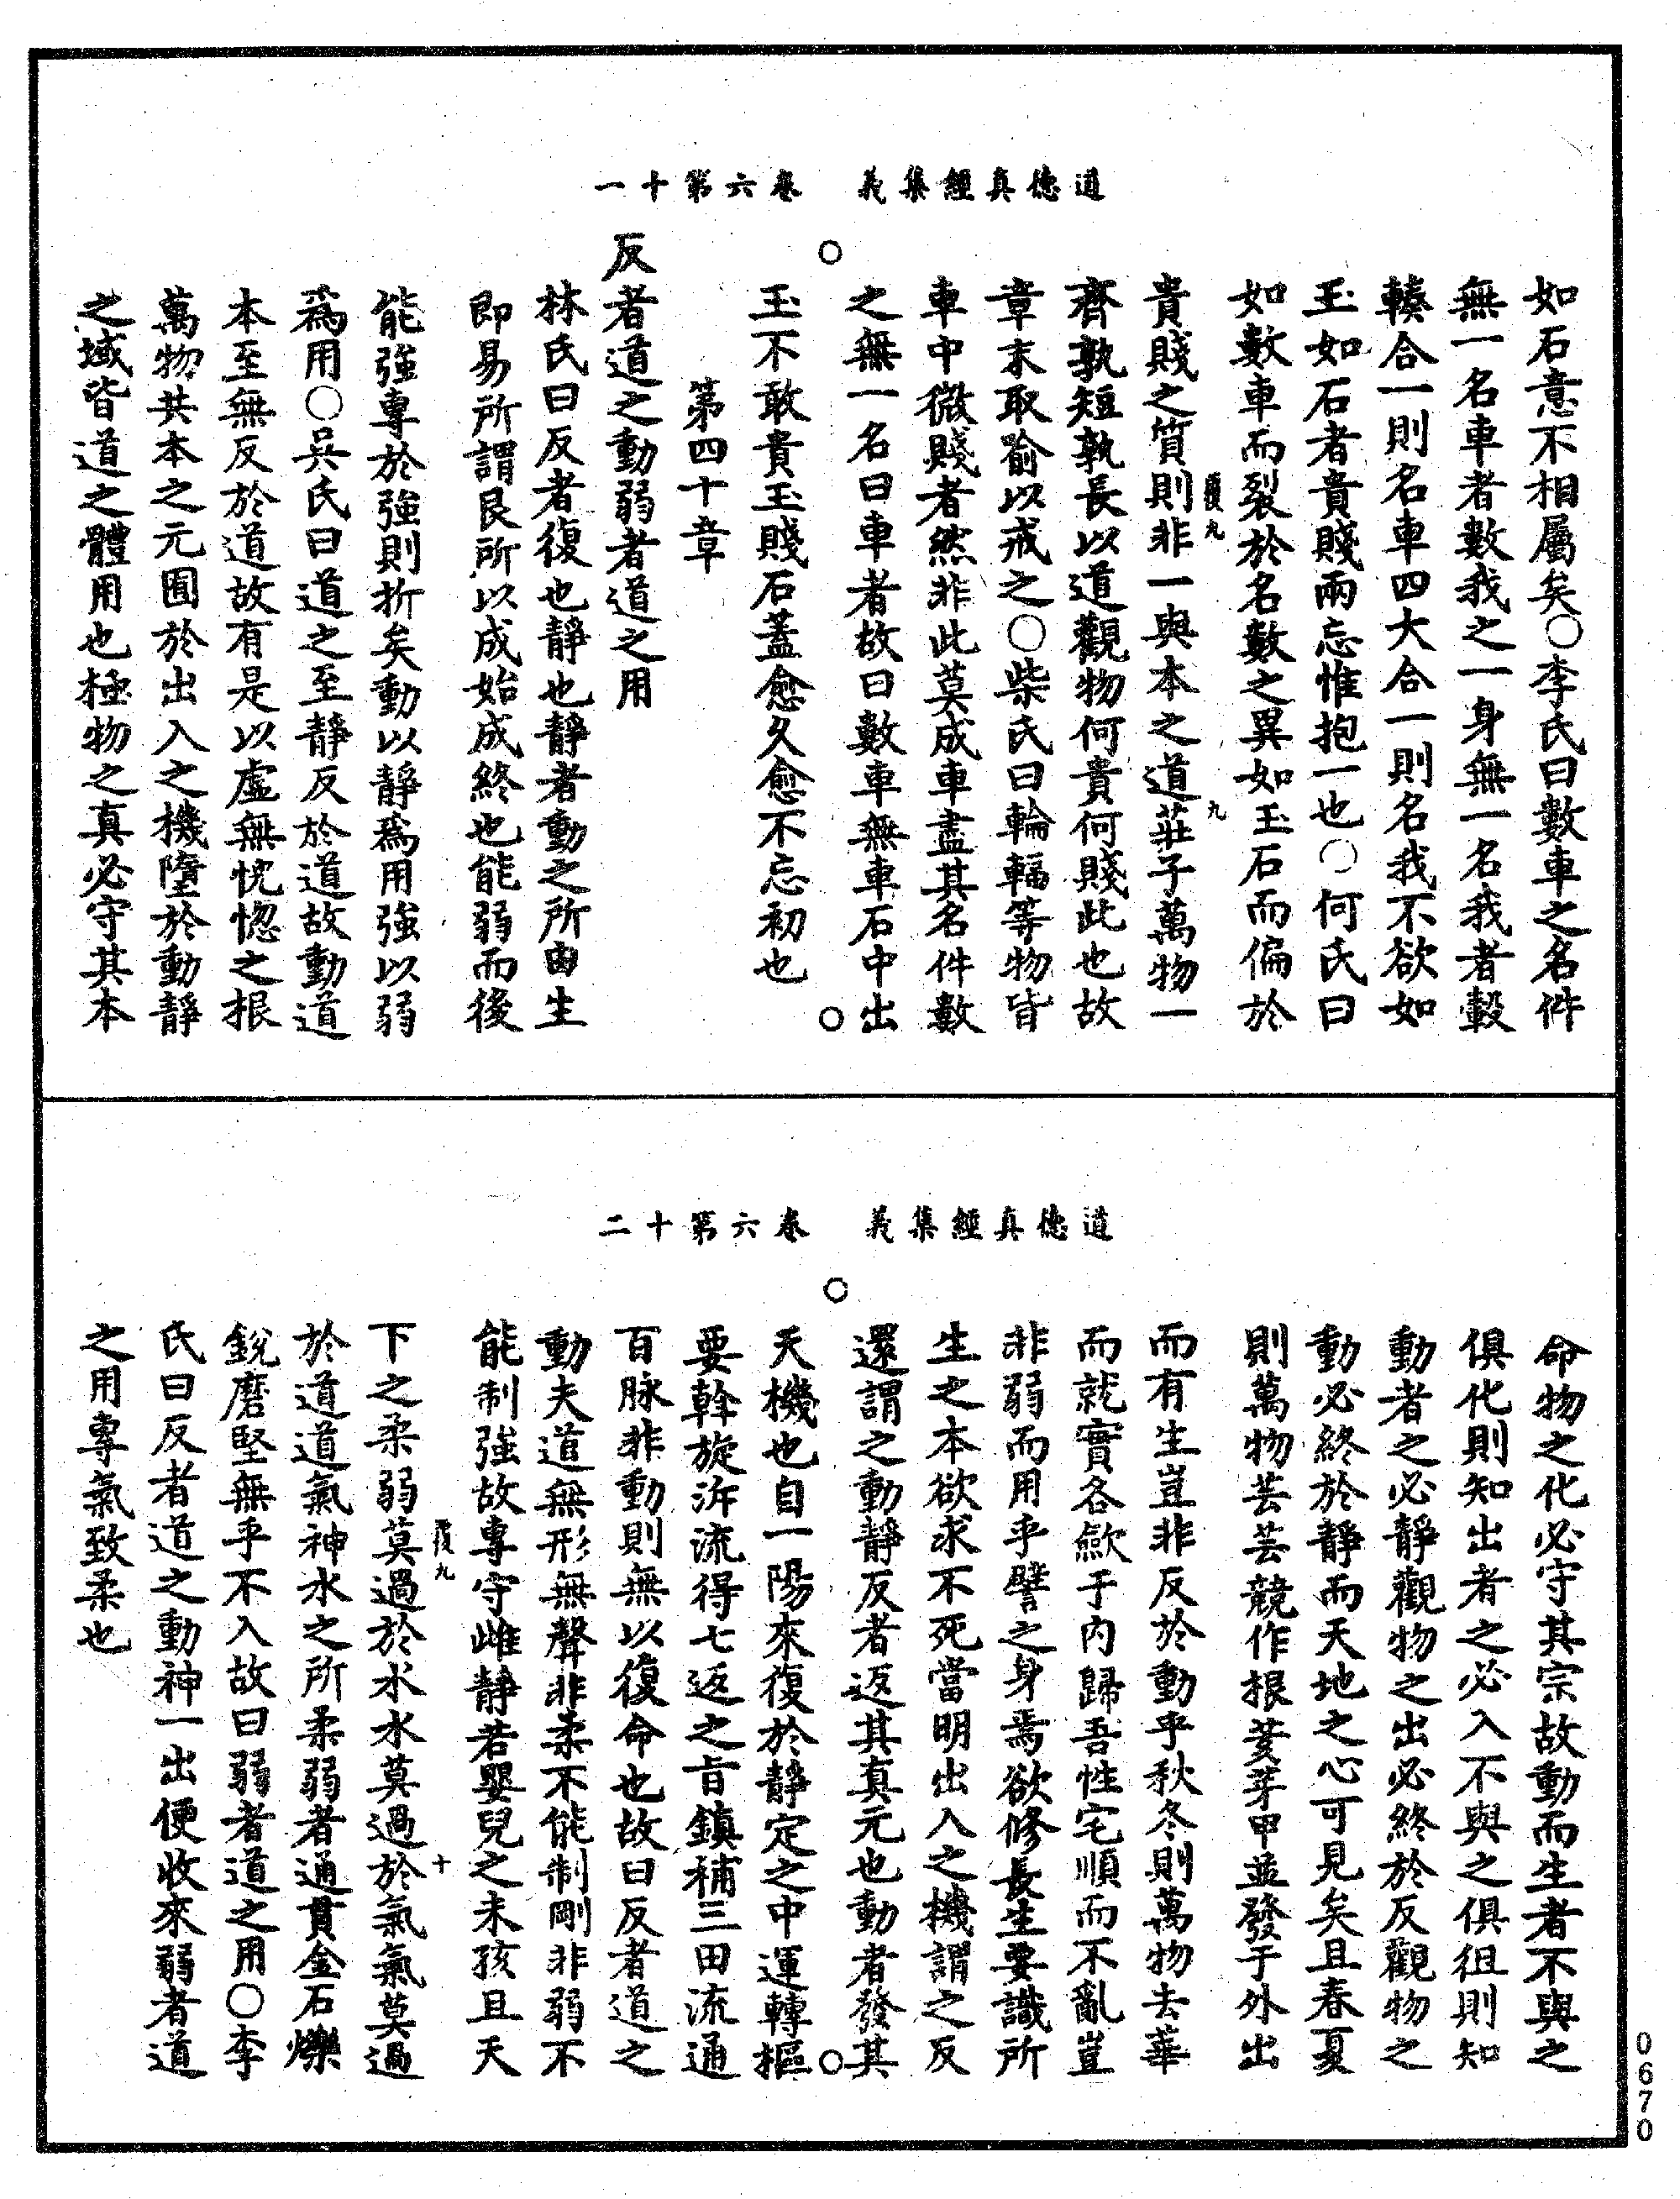 道德真經集義　卷六第十一
如石意不相屬矣○李氏曰數車之名件
無一名車者數我之一身無一名我者轂
輳合一則名車四大合一則名我不欲如
玉如石者貴賤兩忘惟抱一也○何氏曰
如數車而裂於名數之異如玉石而偏於
貴賤之質則非一與本之道莊子萬物一
覆九
九
齊孰短孰長以道觀物何貴何賤此也故
章末取喻以戒之○柴氏曰輪輻等物皆
車中微賤者然非此莫成車盡其名件數
之無一名曰車者故曰數車無車石中出
玉不敢貴玉賤石蓋愈久愈不忘初也
第四十章
反者道之動弱者道之用
林氏曰反者復也靜也靜者動之所由生
即易所謂艮所以成始成終也能弱而後
能強專於強則折矣動以靜爲用強以弱
爲用○吳氏曰道之至靜反於道故動道
本至無反於道故有是以虛無恍惚之根
萬物共本之元囿於出入之機墮於動靜
之域皆道之體用也極物之真必守其本
道德真經集義　卷六第十二
命物之化必守其宗故動而生者不與之
俱化則知出者之必入不與之俱徂則知
動者之必靜觀物之出必終於反觀物之
動必終於靜而天地之心可見矣且春夏
則萬物芸芸競作根荄芽甲並發于外出
而有生豈非反於動乎秋冬則萬物去華
而就實各歛于內歸吾性宅順而不亂豈
非弱而用乎譬之身焉欲修長生要識所
生之本欲求不死當明出入之機謂之反
還謂之動靜反者返其真元也動者發其
天機也自一陽來復於靜定之中運轉樞
要斡旋泝流得七返之旨鎮補三田流通
百脉非動則無以復命也故曰反者道之
動夫道無形無聲非柔不能制剛非弱不
能制強故專守雌靜若嬰兒之未孩且天
下之柔弱莫過於水水莫過於氣氣莫過
覆九
十
於道道氣神水之所柔弱者通貫金石爍
銳磨堅無乎不入故曰弱者道之用○李
氏曰反者道之動神一出便收來弱者道
之用專氣致柔也
0670